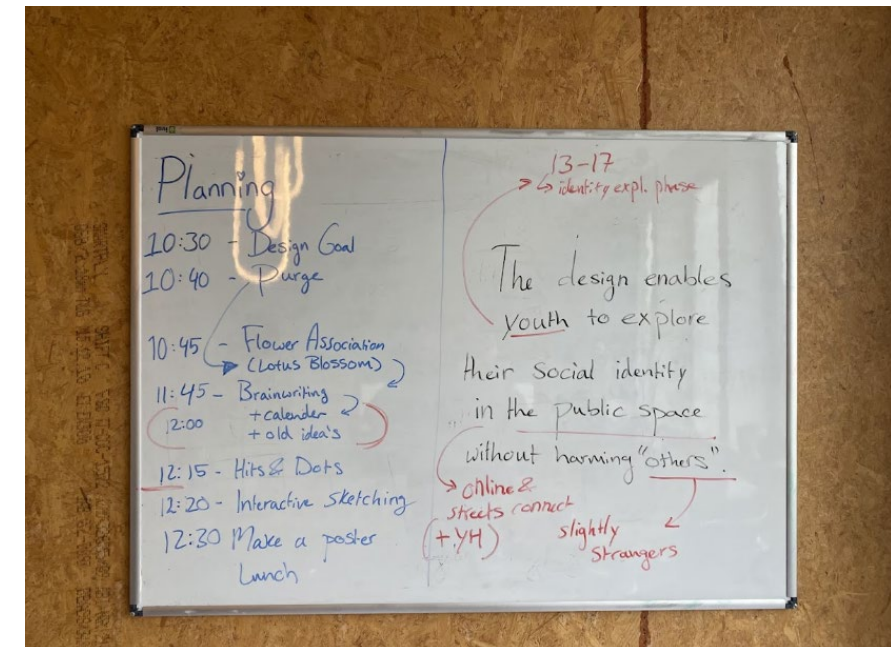 Planning
10:30 - Design Goal
10:40 - Purge
10:45 - Flower Association
(Lotus Blossom)
11:45 - Brainwriting
+calender
12:00
+ old idea's
12:15 - Hits & Dots
12:20 - Interactive Sketching
12:30 Make a poster
Lunch
13-17
identity expl. phase
The design enables
youth to explore
their social identity
in the public space
without harming "others".
online &
streets connect
(+YH)
slightly
strangers